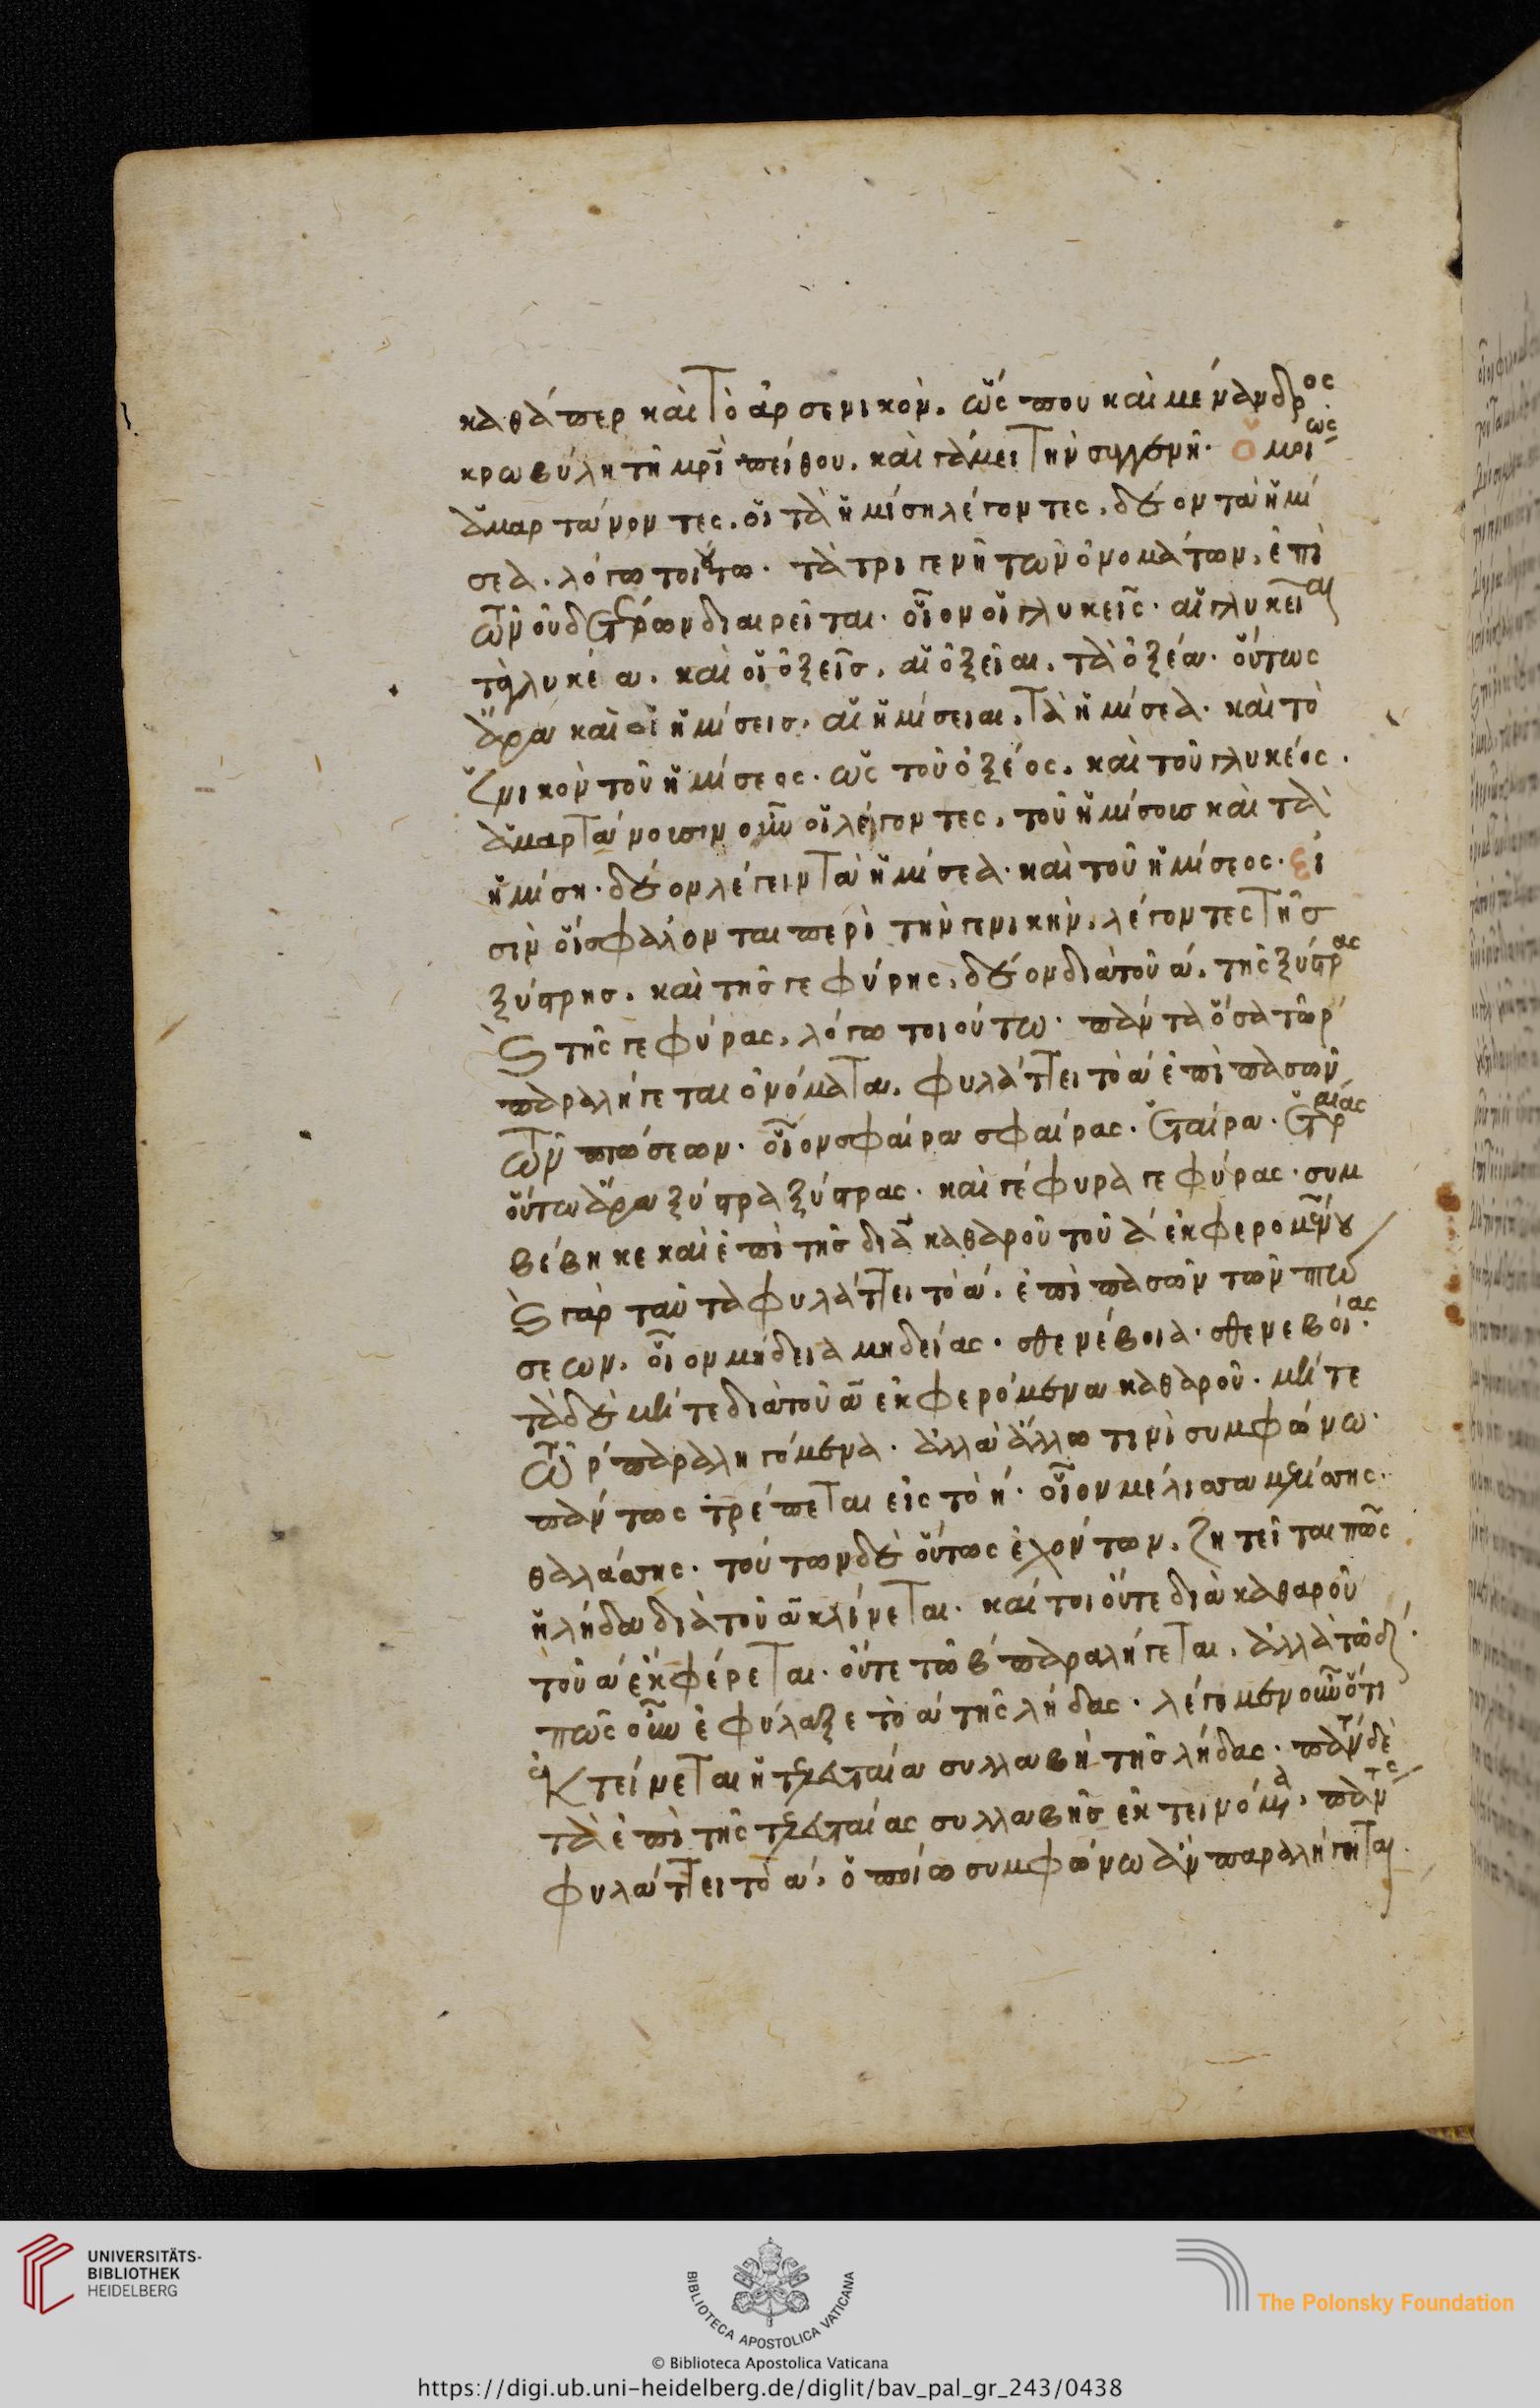 καθάπερ καὶ τὸ ἀρσενικόν. ὥς που καὶ μένανδρος
κρωβύλη τῆ μρὶ πείθου. καὶ γάμει τὴν συγγενῆ. ὁμοίως
ἁμαρτάνοντες. οἱ τὰ ἡμίση λέγοντες. δέον τὰ ἡμί
σεα. λόγω τοιούτω. τὰ τριγενῆ τῶν ὀνομάτων, ἐπὶ
τῶν οὐδετέρων διαιρεῖται. οἷον οἱ γλυκεῖς. αἱ γλυκεῖαι
τὰ γλυκέα. καὶ οἱ ὀξεῖς. αἱ ὀξεῖαι. τὰ ὀξέα. οὕτως
ἄρα καὶ οἱ ἡμίσεις. αἱ ἡμίσειαι. τὰ ἡμίσεα. καὶ τὸ
ἑνικὸν τοῦ ἡμίσεος. ὡς τοῦ ὀξέος. καὶ τοῦ γλυκέος.
ἁμαρτάνουσιν οὖν οἱ λέγοντες. τοῦ ἡμίσους καὶ τὰ
ἡμίση. δέον λέγειν τὰ ἡμίσεα. καὶ τοῦ ἡμίσεος. εἰ
σὶν οἳ σφάλονται περὶ τὴν γενικὴν. λέγοντες τῆς
ξύστρης. καὶ τῆς γεφύρης. δέον διὰ τοῦ α. τῆς ξύστρας
καὶ τῆς γεφύρας, λόγω τοιούτω. πάντα ὅσα τῶ ρ
παραλήγεται ὀνόματα. φυλάττει τὸ α ἐπὶ πασῶν
τῶν πτώσεων. οἷον σφαίρα σφαίρας. ἑταίρα. ἑταίρας
οὕτω ἄρα ξύστρα ξύστρας. καὶ γέφυρα γεφύρας. συμ
βέβηκε καὶ ἐπὶ τῆς διὰ καθαροῦ τοῦ α ἐκφερομένου
καὶ γὰρ ταῦτα φυλάττει τὸ α. ἐπὶ πασῶν τῶν πτώ
σεων. οἷον μήδεια μηδείας. σθενέβοια. σθενεβοίας.
τὰ δὲ μήτε διὰ τοῦ α ἐκφερόμενα καθαροῦ. μήτε
τῶ ρ παραληγόμενα. ἀλλὰ ἄλλω τινὶ συμφώνω.
πάντως τρέπεται εἰς τὸ η. οἷον μέλισσα μελίσσης.
θαλάσσης. τούτων δὲ οὕτως ἐχόντων. ζητεῖται πῶς
ἡ λήδα διὰ τοῦ α κλίνεται. καίτοι οὔτε διὰ καθαροῦ
τοῦ α ἐκφέρεται. οὔτε τῶ β παραλήγεται. ἀλλὰ τῶ δ.
πῶς οὖν ἐφύλαξε τὸ α τῆς λήδας. λέγομεν οὖν ὅτι
ἐκτείνεται ἡ τελευταία συλλαβὴ τῆς λήδας. πάντα δὲ
τὰ ἐπὶ τῆς τελευταίας συλλαβῆς ἐκτεινόμενα. πάντως
φυλάττει τὸ α. ὁποίω συμφώνω ἂν παραλήγηται.
UNIVERSITÄTS-
BIBLIOTHEK
HEIDELBERG
BIBLIOTECA APOSTOLICA VATICANA
The Polonsky Foundation
© Biblioteca Apostolica Vaticana
https://digi.ub.uni-heidelberg.de/diglit/bav_pal_gr_243/0438